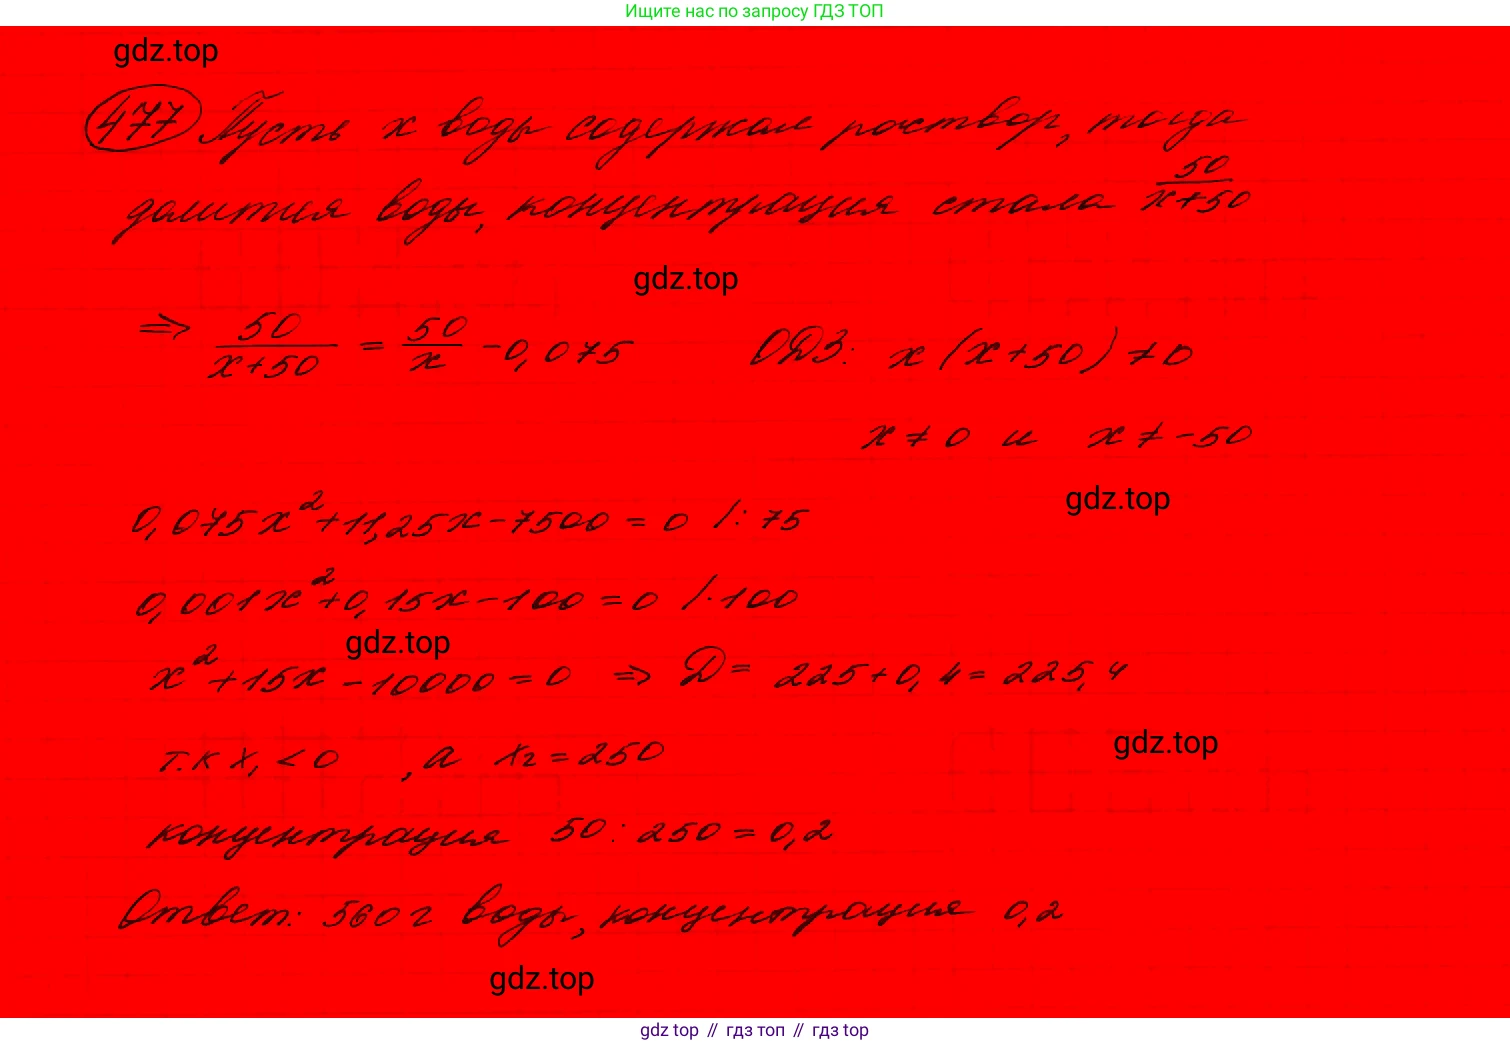 Ищите нас по запросу ГДЗ ТОП
gdz.top
477 Пусть x воды содержал раствор, тогда
долития воды, концентрация стала 50/(x+50)
gdz.top
⇒ 50/(x+50) = 50/x - 0,075 ОДЗ: x(x+50) ≠ 0
x ≠ 0 и x ≠ -50
gdz.top
0,075x² + 11,25x - 7500 = 0 /: 75
0,001x² + 0,15x - 100 = 0 /·100
gdz.top
x² + 15x - 10000 = 0 ⇒ D = 225 + 0,4 = 225,4
gdz.top
т.к x₁ < 0 , а x₂ = 250
концентрация 50 : 250 = 0,2
Ответ: 560 г воды, концентрация 0,2
gdz.top
gdz top // гдз топ // гдз top